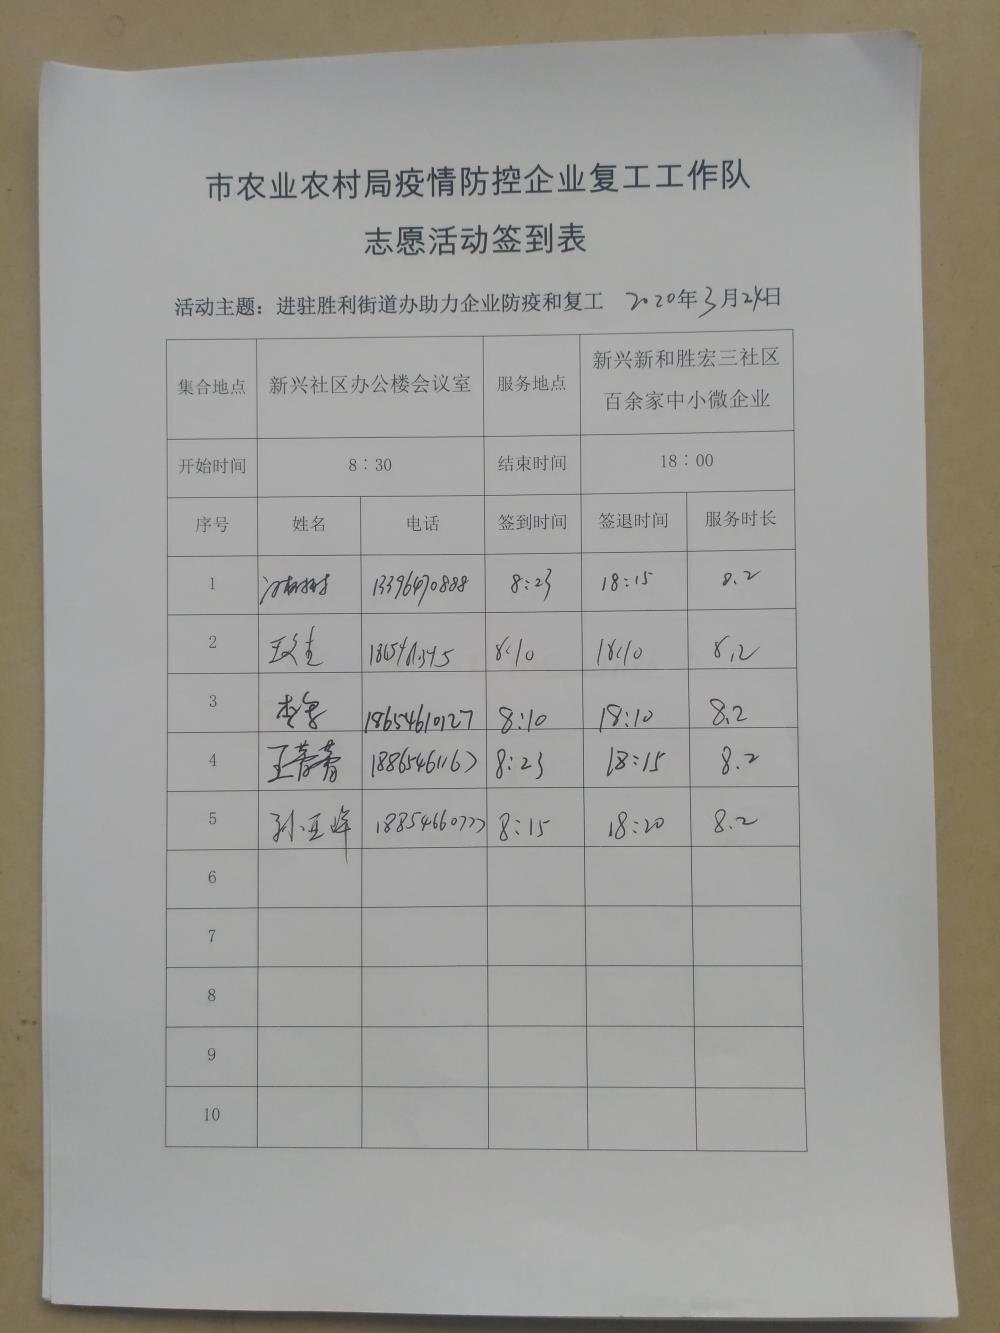 市农业农村局疫情防控企业复工工作队
志愿活动签到表
活动主题：进驻胜利街道办助力企业防疫和复工 2020年3月24日
集合地点 新兴社区办公楼会议室 服务地点 新兴新和胜宏三社区
百余家中小微企业
开始时间 8：30 结束时间 18：00
序号 姓名 电话 签到时间 签退时间 服务时长
1 13396470888 8:23 18:15 8.2
2 8:10 18:10 8.2
3 18654610127 8:10 18:10 8.2
4 王蕾蕾 18865461167 8:23 18:15 8.2
5 孙亚峰 18854660777 8:15 18:20 8.2
6
7
8
9
10